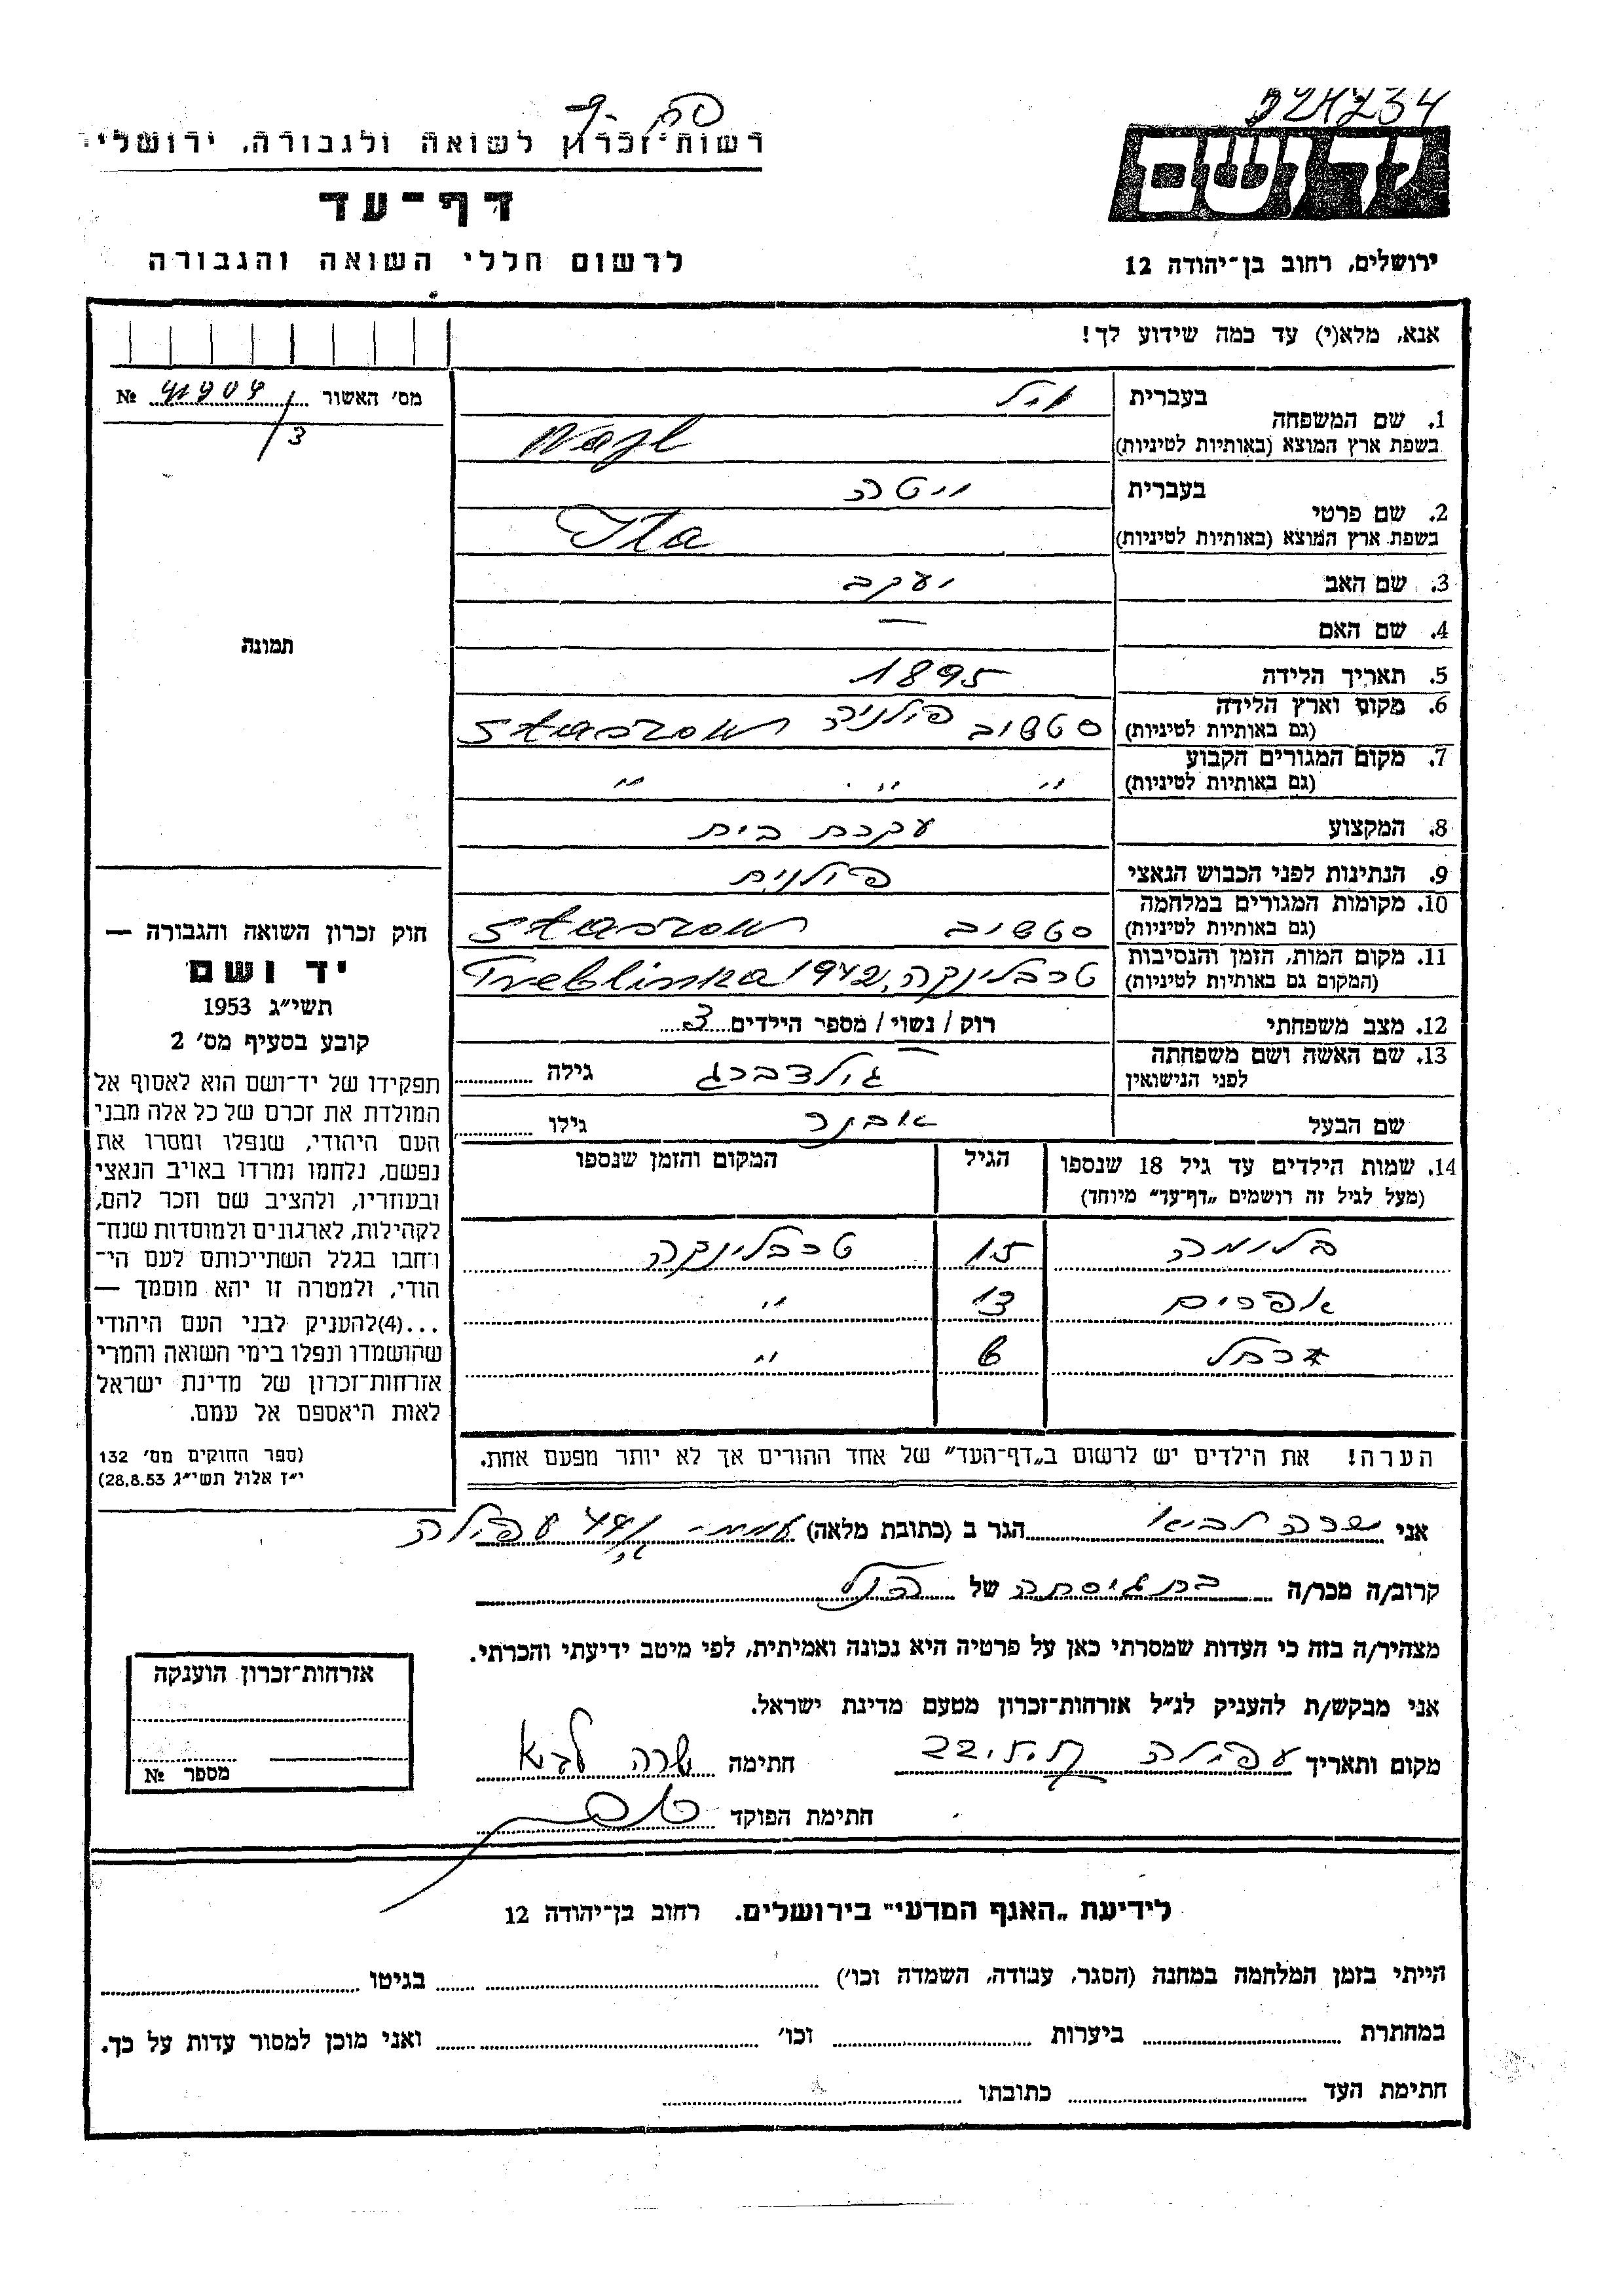 924734
רשות־זכרון לשואה ולגבורה, ירושלי
ידושם
דף־עד
לרשום חללי השואה והגבורה
ירושלים, רחוב בן־יהודה 12
אנא, מלא(י) עד כמה שידוע לך!
מס׳ האשור № 41909/3
1. שם המשפחה
בעברית
בשפת ארץ המוצא (באותיות לטיניות)
2. שם פרטי
בעברית ויטה
בשפת ארץ המוצא (באותיות לטיניות) Ita
3. שם האב יעקב
4. שם האם —
5. תאריך הלידה 1895
6. מקום וארץ הלידה (גם באותיות לטיניות) סטשוב פולניה Staszow
7. מקום המגורים הקבוע (גם באותיות לטיניות) " " "
8. המקצוע עקרת בית
9. הנתינות לפני הכבוש הנאצי פולנית
10. מקומות המגורים במלחמה (גם באותיות לטיניות) סטשוב Staszow
11. מקום המות, הזמן והנסיבות (המקום גם באותיות לטיניות) טרבלינקה, 1942 Treblinka
12. מצב משפחתי רוק / נשוי / מספר הילדים 3
13. שם האשה ושם משפחתה לפני הנישואין גולדברג גילה
שם הבעל אבנר גילו
14. שמות הילדים עד גיל 18 שנספו (מעל לגיל זה רושמים „דף־עד״ מיוחד) הגיל המקום והזמן שנספו
בלומה 15 טרבלינקה
אפרים 13 "
6 "
הערה! את הילדים יש לרשום ב„דף־העד״ של אחד ההורים אך לא יותר מפעם אחת.
תמונה
חוק זכרון השואה והגבורה —
יד ושם
תשי״ג 1953
קובע בסעיף מס׳ 2
תפקידו של יד־ושם הוא לאסוף אל
המולדת את זכרם של כל אלה מבני
העם היהודי, שנפלו ומסרו את
נפשם, נלחמו ומרדו באויב הנאצי
ובעוזריו, ולהציב שם וזכר להם,
לקהילות, לארגונים ולמוסדות שנח־
רחבו בגלל השתייכותם לעם הי־
הודי, ולמטרה זו יהא מוסמך —
...(4)להעניק לבני העם היהודי
שהושמדו ונפלו בימי השואה והמרי
אזרחות־זכרון של מדינת ישראל
לאות היאספם אל עמם.
(ספר החוקים מס׳ 132
י״ז אלול תשי״ג 28.8.53)
אני שרה לביא הגר ב (כתובת מלאה) עפולה
קרוב/ה מכר/ה בת גיסתה של הנ״ל
מצהיר/ה בזה כי העדות שמסרתי כאן על פרטיה היא נכונה ואמיתית, לפי מיטב ידיעתי והכרתי.
אני מבקש/ת להעניק לנ״ל אזרחות־זכרון מטעם מדינת ישראל.
מקום ותאריך עפולה חתימה שרה לביא
חתימת הפוקד
אזרחות־זכרון הוענקה
מספר №
לידיעת „האגף המדעי״ בירושלים. רחוב בן־יהודה 12
הייתי בזמן המלחמה במחנה (הסגר, עבודה, השמדה וכו׳) בגיטו
במחתרת ביערות וכו׳ ואני מוכן למסור עדות על כך.
חתימת העד כתובתו